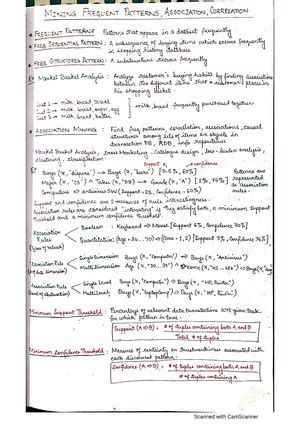 MINING FREQUENT PATTERNS, ASSOCIATION, CORRELATION
FREQUENT PATTERNS : Patterns that appears in a dataset frequently
FREQ SEQUENTIAL PATTERN : A subsequence of buying items which occurs frequently
in shopping history database
FREQ STRUCTURED PATTERN : A substructure occurs frequently
Market Basket Analysis : Analyze customer's buying habits by finding associations
between the different items that a customer places in
his shopping basket
milk, bread, cereal
milk, bread, sugar, egg
milk, bread, butter
milk, bread frequently purchased together
ASSOCIATION MINING : Find freq patterns, correlation, associations, causal
structures among sets of items or objects in
transaction DB, RDB, info. repositories
Market Basket Analysis, Cross Marketing, Catalogue design, loss-leader analysis,
clustering, classification
support confidence
Buys (x, "diapers") → Buys (x, "beers") [0.5%, 60%]
Major (x, "CS") ^ Takes (x, "DB") → Grade (x, "A") [1%, 75%]
Computers ⇒ antivirus SW [support = 2%, confidence = 60%]
Patterns are
represented
as 'association
rules'
Support and confidence are 2 measures of rule interestingness.
Association rules are considered 'interesting' if they satisfy both, a minimum support
threshold and a minimum confidence threshold.
Association
Rules
(Types of values)
Boolean : Keyboard ⇒ Mouse [support 6%, confidence 70%]
Quantitative :
Association Rules
Single Dimension Buys (x, "Computer") ⇒ Buys (x, "Antivirus")
Multi Dimension
Association
Rules
(level of abstraction)
Single level
Multilevel
Minimum Support Threshold : Percentage of relevant data transactions
for which pattern is true.
Support (A ⇒ B) = # of tuples containing both A and B
Total # of tuples
Minimum Confidence Threshold : Measure of certainty or trustworthiness associated with
each discovered pattern
Confidence (A ⇒ B) = # of tuples containing both A and B
# of tuples containing A
Scanned with CamScanner